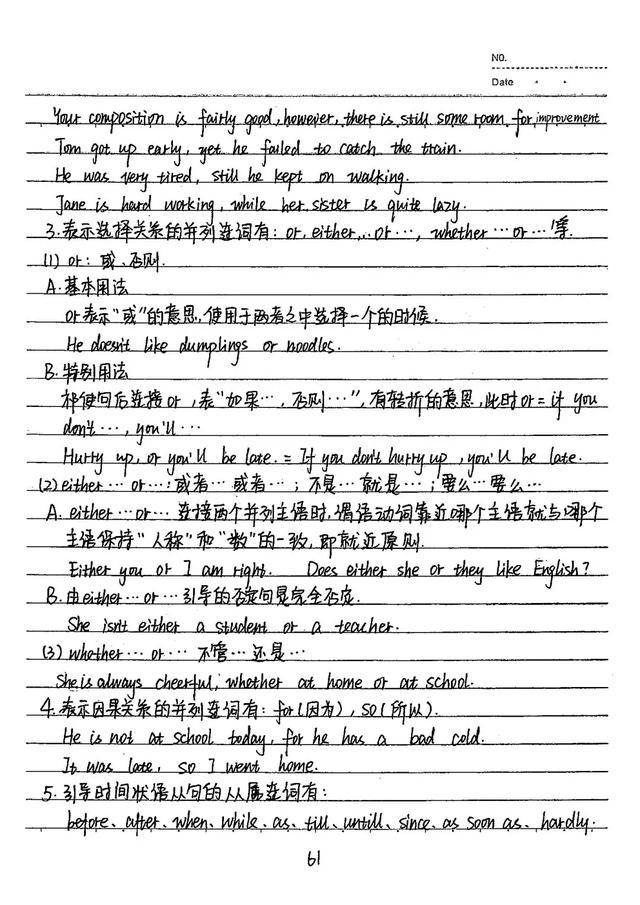 NO.
Date
Your composition is fairly good, however, there is still some room for improvement
Tom got up early, yet he failed to catch the train.
He was very tired, still he kept on walking.
Jane is hard working, while her sister is quite lazy.
3.表示选择关系的并列连词有: or, either…or…, whether…or…等.
(1) or: 或、否则.
A.基本用法
or表示“或”的意思,使用于两者之中选择一个的时候.
He doesn't like dumplings or noodles.
B.特别用法
祁使句后连接or ,表“如果…,否则…”,有转折的意思,此时or= if you
don't…, you'll…
Hurry up, or you'll be late. = If you don't hurry up, you'll be late.
(2) either…or…:或者…或者…; 不是…就是…;要么…要么…
A. either…or…连接两个并列主语时,谓语动词靠近哪个主语就与哪个
主语保持“人称”和“数”的一致,即就近原则.
Either you or I am right. Does either she or they like English?
B.由either…or…引导的否定句是完全否定.
She isn't either a student or a teacher.
(3) whether…or… 不管…还是…
She is always cheerful, whether at home or at school.
4.表示因果关系的并列连词有: for(因为), so(所以).
He is not at school today, for he has a bad cold.
It was late, so I went home.
5.引导时间状语从句的从属连词有:
before、after、when、while、as、till、untill、since、as soon as、hardly.
61